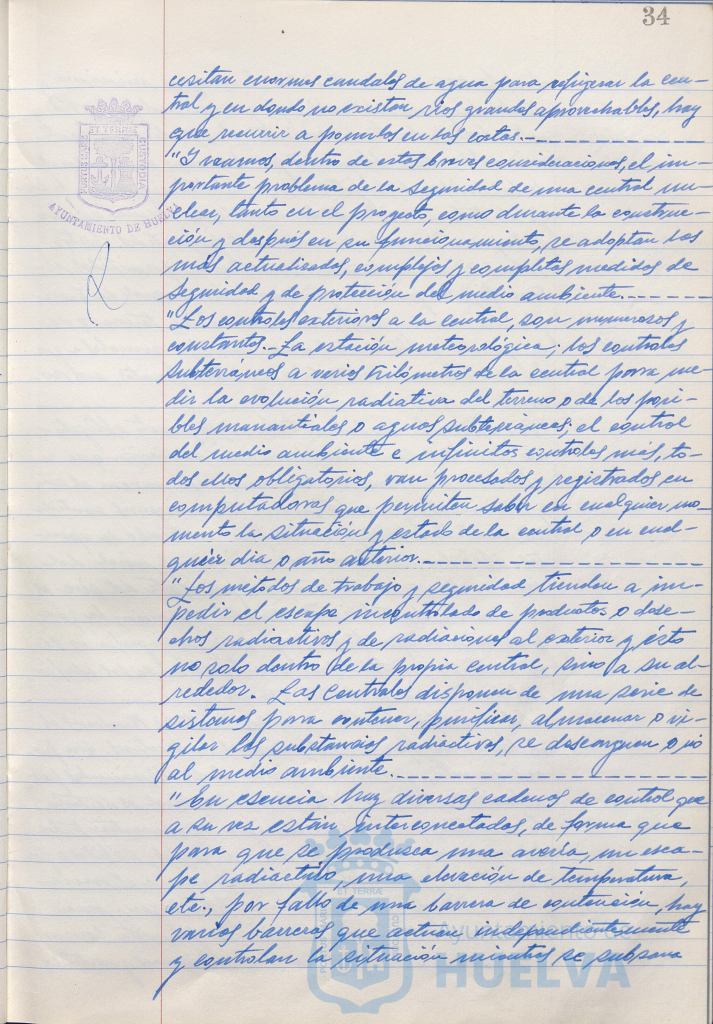 34
cesitan enormes caudales de agua para refrigerar la cen-
tral y en donde no existan rios grandes aprovechables, hay
que recurrir a ponerlos en las costas.-
"Y veamos, dentro de estas breves consideraciones, el im-
portante problema de la seguridad de una central nu-
clear, tanto en el proyecto, como durante la construc-
ción y después en su funcionamiento, se adoptan las
más actualizadas, complejas y completas medidas de
seguridad y de protección del medio ambiente.-
"Los controles exteriores a la central, son numerosos y
constantes.- La estación meteorológica; los controles
subterraneos a varios kilómetros de la central para me-
dir la evolución radiativa del terreno o de los posi-
bles manantiales o aguas subterráneas; el control
del medio ambiente e infinitos controles más, to-
dos ellos obligatorios, van procesados y registrados en
computadoras que permiten saber en cualquier mo-
mento la situación y estado de la central o en cual-
quier dia o año anterior.-
"Los métodos de trabajo y seguridad tienden a im-
pedir el escape incontrolado de productos o dese-
chos radiactivos y de radiaciones al exterior y ésto
no solo dentro de la propia central, sino a su al-
rededor. Las Centrales disponen de una serie de
sistemas para contener, purificar, almacenar o vi-
gilar las substancias radiactivas, se descarguen o no
al medio ambiente.-
"En esencia hay diversas cadenas de control que
a su vez están interconectadas, de forma que
para que se produzca una avería, un esca-
pe radiactivo, una elevación de temperatura,
etc., por fallo de una barrera de contención, hay
varias barreras que actuan independientemente
y controlan la situación mientras se subsana
ET TERRIS
CUSTODIA
AYUNTAMIENTO DE HUELVA
ET TERRÆ
Ayuntamiento de
HUELVA